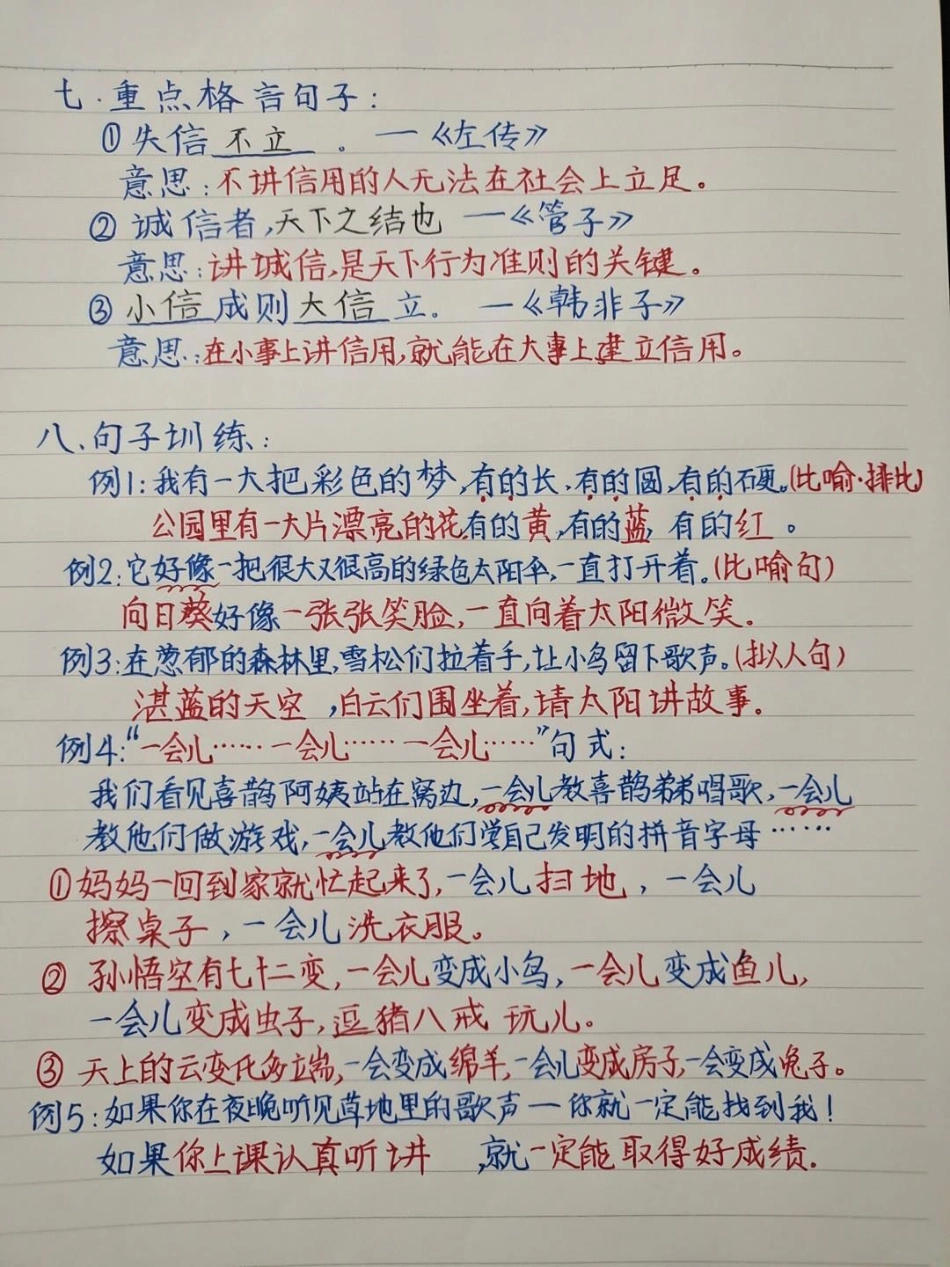 七.重点格言句子:
①失信不立。—《左传》
意思:不讲信用的人无法在社会上立足。
②诚信者,天下之结也 —《管子》
意思:讲诚信,是天下行为准则的关键。
③小信成则大信立。—《韩非子》
意思:在小事上讲信用,就能在大事上建立信用。
八、句子训练:
例1:我有一大把彩色的梦,有的长、有的圆,有的硬。(比喻·排比)
公园里有一大片漂亮的花,有的黄,有的蓝,有的红。
例2:它好像一把很大又很高的绿色太阳伞,一直打开着。(比喻句)
向日葵好像一张张笑脸,一直向着太阳微笑。
例3:在葱郁的森林里,雪松们拉着手,让小鸟留下歌声。(拟人句)
湛蓝的天空,白云们围坐着,请太阳讲故事。
例4:“一会儿……一会儿……一会儿……”句式:
我们看见喜鹊阿姨站在窝边,一会儿教喜鹊弟弟唱歌,一会儿
教他们做游戏,一会儿教他们学自己发明的拼音字母……
①妈妈一回到家就忙起来了,一会儿扫地,一会儿
擦桌子,一会儿洗衣服。
②孙悟空有七十二变,一会儿变成小鸟,一会儿变成鱼儿,
一会儿变成虫子,逗猪八戒玩儿。
③天上的云变化多端,一会变成绵羊,一会儿变成房子,一会变成兔子。
例5:如果你在夜晚听见草地里的歌声—你就一定能找到我!
如果你上课认真听讲,就一定能取得好成绩.